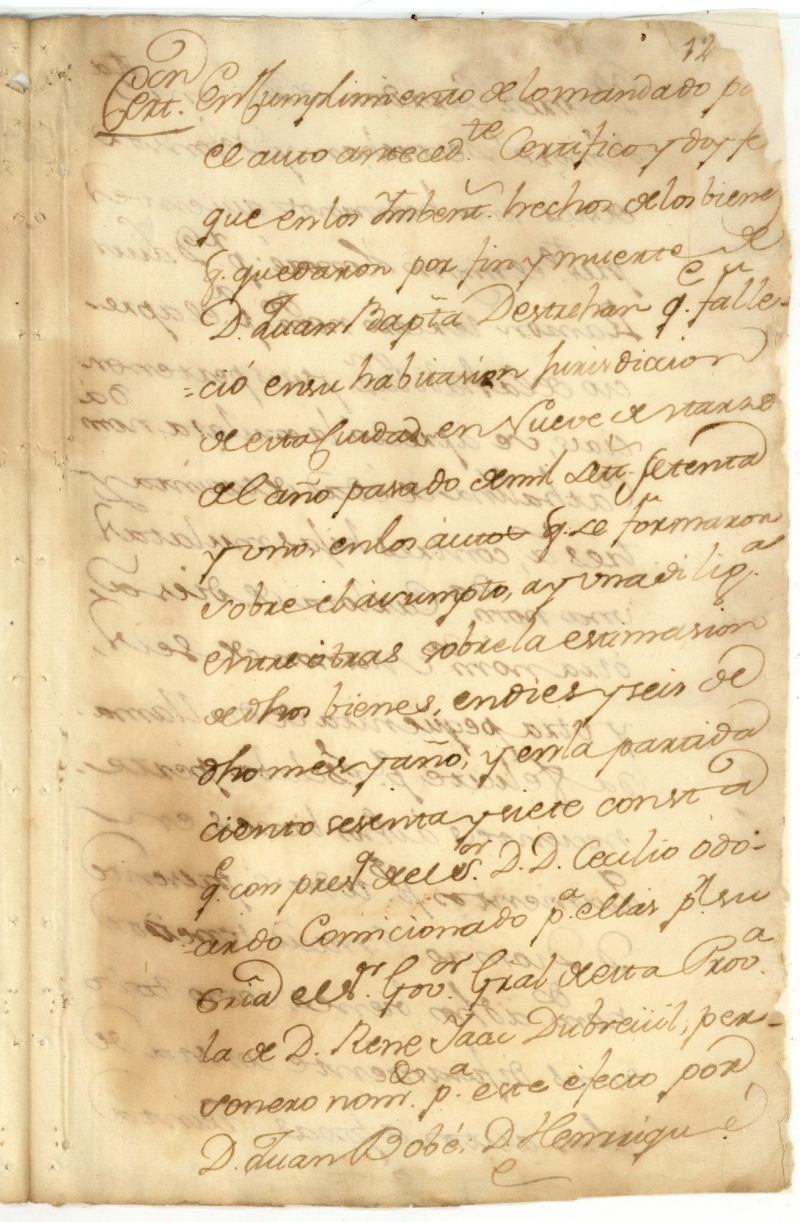 12
Cert.on En Cumplimiento de lo mandado po
el auto anteced.te Certifico y doy fe
que en los Imbent.s hechos de los biene
q.e quedaron por fin y muerte de
D. Juan Bapta Destrehan q.e falle-
=ció en su habitasion Jurisdiccion
de esta Ciudad en Nueve de Marzo
del año pasado de mil Sett.s Setenta
y uno, en los autos q.e se formaron
sobre el asumpto, ay una dilig.a
entre otras sobre la estimasion
de dhos bienes, en dies y seis de
dho mes y año, y en la partida
ciento sesenta y siete consta
q.e con pres.a del S.or D. D. Cecilio Odo-
ardo Comicionado p.a ellas p.r su
Sria el S.r Gov.or Gral de esta Prov.a
la de D. Rene Isaac Dubreüil, per-
sonero nom.do p.a este efecto por
D. Juan Bobé, D. Henrrique